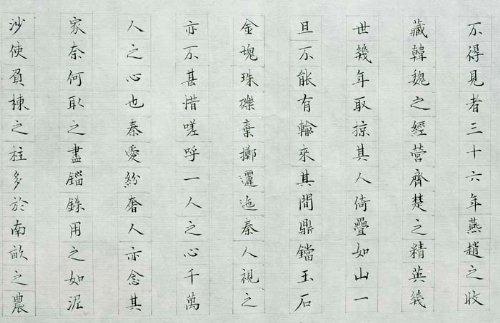 不得見者三十六年燕趙之收
藏韓魏之經營齊楚之精英幾
世幾年取掠其人倚疊如山一
旦不能有輸來其間鼎鐺玉石
金塊珠礫棄擲邐迤秦人視之
亦不甚惜嗟呼一人之心千萬
人之心也秦愛紛奢人亦念其
家奈何取之盡錙銖用之如泥
沙使負棟之柱多於南畝之農